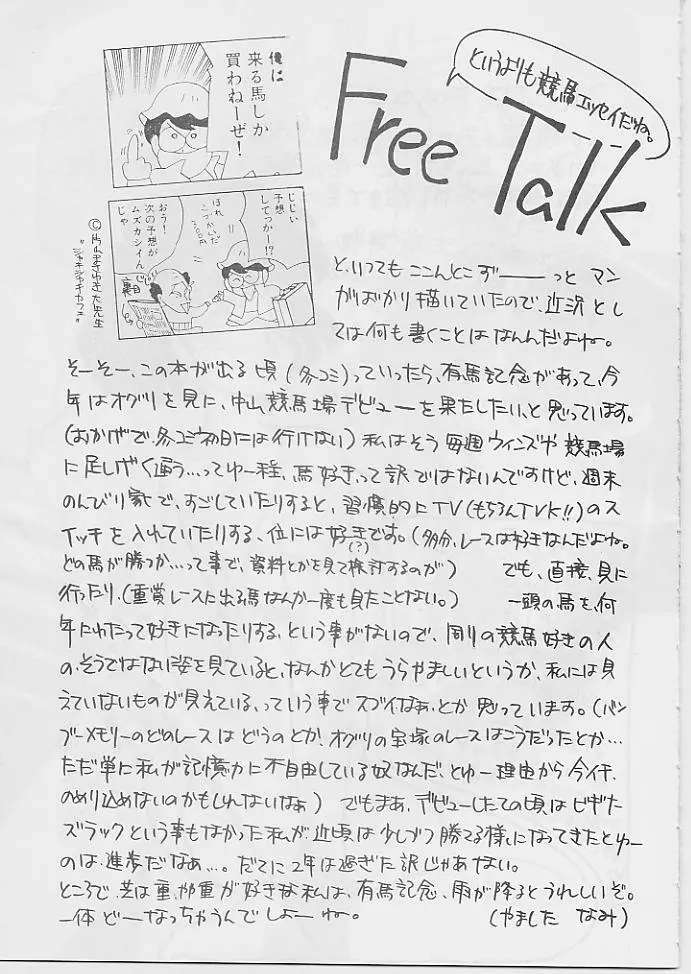 Free Talk
というよりも競馬エッセイだね。
俺は
来る馬しか
買わねーぜ!
じじい
予想
してっかー!?
ほれ
こづかいだ
300円
おう!
次の予想が
ムズカシイん
じゃ
裏目
©片山まさゆき大先生
"シャキシャキカフェ"
と、いってもここんとこず――っとマン
がばかり描いていたので、近況とし
ては何も書くことはなんんだよね。
そーそー、この本が出る頃(冬コミ)っていったら、有馬記念があって、今
年はオグリを見に、中山競馬場デビューを果たしたい、と思っています。
(おかげで、冬コミ初日には行けない)私はそう毎週ウインズや競馬場
に足しげく通う…ってゆー程、馬好きって訳ではないんですけど、週末
のんびり家で、すごしていたりすると、習慣的にTV(もちろんTVK!!)のス
イッチを入れていたりする、位には好きです。(多分、レースは好きなんだよね。
(?)
どの馬が勝つか…って事で、資料とかを見て検討するのが) でも、直接、見に
行ったり、(重賞レースに出る馬なんか一度も見たことない。) 一頭の馬を、何
年にわたって好きになったりする、という事がないので、周りの競馬好きの人
の、そうではない姿を見ていると、なんかとてもうらやましいというか、私には見
えていないものが見えている、っていう事でスゴイなぁ、とか思っています。(バン
ブーメモリーのどのレースはどうのとか、オグリの宝塚のレースはこうだったとか…
ただ単に私が記憶力に不自由している奴なんだ、とゆー理由から今イチ、
のめり込めないのかもしれないなぁ) でもまあ、デビューしたての頃はビギナ
ズラックという事もなかった私が近頃は少しづつ勝てる様になってきたとゆー
のは、進歩だなぁ…。だてに2年は過ぎた訳じゃあない。
ところで、芝は重、やや重が好きな私は、有馬記念、雨が降るとうれしいぞ。
一体どーなっちゃうんでしょーね。 (やました なみ)